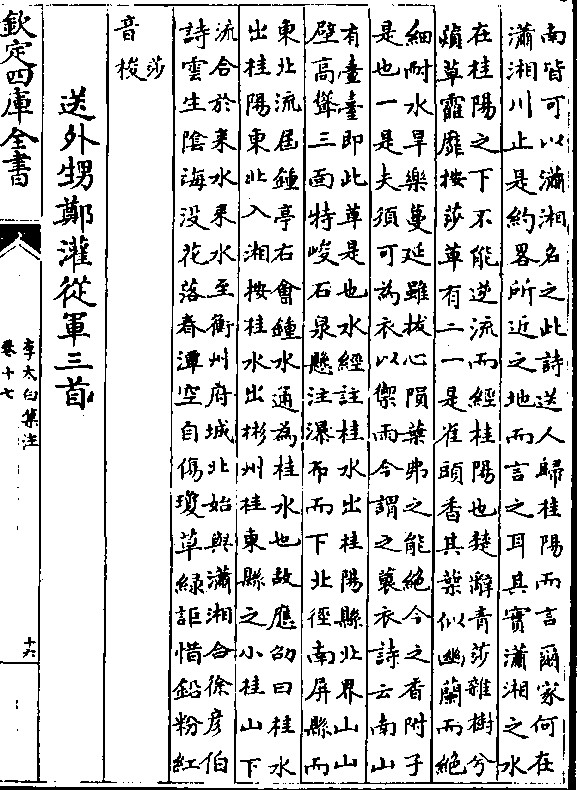 南皆可以瀟湘名之此詩送人歸桂陽而言爾家何在
瀟湘川止是約畧所近之地而言之耳其實瀟湘之水
在桂陽之下不能逆流而經桂陽也楚辭青莎雜樹兮
薠草靃靡按莎草有二一是雀頭香其葉似幽蘭而絕
細耐水旱樂蔓延雖拔心隕葉弗之能絕今之香附子
是也一是夫須可為衣以禦雨今謂之蓑衣詩云南山
有臺臺即此草是也水經註桂水出桂陽縣北界山山
壁高聳三面特峻石泉懸注瀑布而下北徑南屏縣而
東北流屆鍾亭右會鍾水通為桂水也故應劭曰桂水
出桂陽東北入湘按桂水出彬州桂東縣之小桂山下
流合於耒水耒水至衡州府城北始與瀟湘合徐彥伯
詩雲生陰海没花落春潭空自傷瓊草緑詎惜鉛粉紅
莎
音梭
送外甥鄭灌從軍三首
欽定四庫全書
李太白集注
卷十七
十六